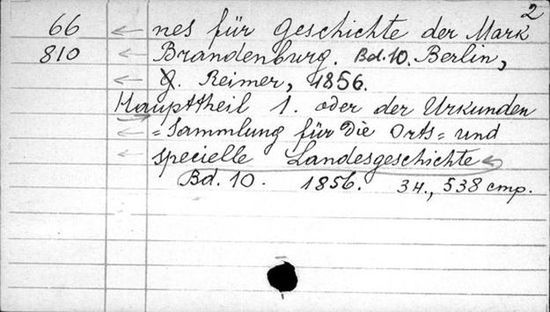 2
66 nes für Geschichte der Mark
810 Brandenburg. Bd. 10. Berlin,
G. Reimer, 1856.
Haupttheil 1. oder der Urkunden
=Sammlung für die Orts= und
specielle Landesgeschichte
Bd. 10. 1856. 34., 538 cmp.